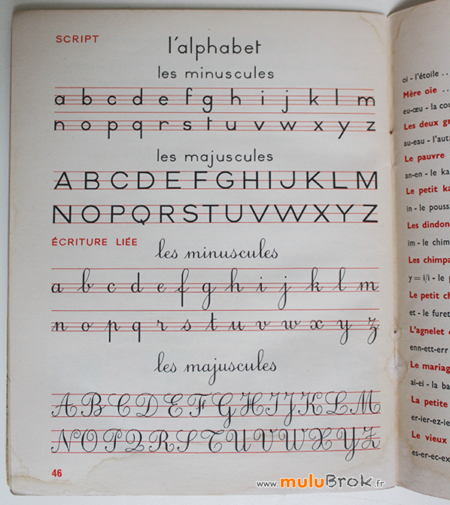 SCRIPT
l'alphabet
les minuscules
a b c d e f g h i j k l m
n o p q r s t u v w x y z
les majuscules
A B C D E F G H I J K L M
N O P Q R S T U V W X Y Z
ÉCRITURE LIÉE
les minuscules
a b c d e f g h i j k l m
n o p q r s t u v w x y z
les majuscules
A B C D E F G H I J K L M
N O P Q R S T U V W X Y Z
46
www.muluBrok.fr
oi - l'étoile ..
Mère oie ..
eu-œu - la cou
Les deux gr
au-eau - l'aut
Le pauvre
an-en - le ka
Le petit ka
in - le pouss
Les dindon
im - le chim
Les chimpa
y = i/i - le p
Le petit ch
et - le furet
L'agnelet
enn-ett-err
Le mariag
ai-ei - la bal
La petite
er-ier-ez-ie
Le vieux
es-er-ec-ex